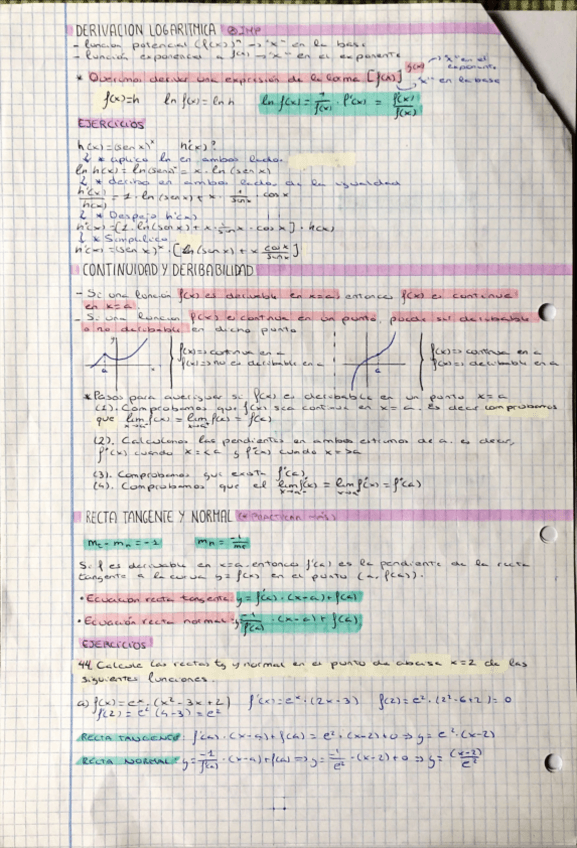 DERIVACIÓN LOGARÍTMICA
- función potencial (f(x))ⁿ → "x" en la base
- función exponencial a^f(x) → "x" en el exponente
"x" en el exponente
* Queremos derivar una expresión de la forma [f(x)]^g(x) → "x" en la base
f(x)=h ln f(x) = ln h ln f(x) = 1/f(x) · f'(x) = f'(x)/f(x)
EJERCICIOS
h(x)=(sen x)ˣ h'(x)?
* aplico ln en ambos lados.
ln h(x)= ln(senx)ˣ = x · ln (sen x)
* derivo en ambos lados de la igualdad
h'(x)/h(x) = 1 · ln (sen x) + x · 1/senx · cosx
* Despejo h'(x)
h'(x)=[1 · ln(senx) + x · 1/senx · cosx] · h(x)
* Simplifico
h'(x)=(sen x)ˣ · [ln(sen x) + x cosx/senx]
CONTINUIDAD Y DERIBABILIDAD
- Si una función f(x) es derivable en x=a, entonces f(x) es continua
en x=a
- Si una función f(x) es continua en un punto, puede ser deribable
o no deribable en dicho punto
f(x) => continua en a f(x) => continua en a
f(x) => no es deribable en a f(x) => derivable en a
a a
* Pasos para averiguar si f(x) es deribable en un punto x=a
(1). Comprobamos que f(x) sea continua en x=a. Es decir comprobamos
que lim f(x) = lim f(x) = f(a)
(2). Calculamos las pendientes en ambos extremos de a. es decir,
f'(x) cuando x=<a y f'(x) cuando x=>a
(3). Comprobamos que exista f'(a)
(4). Comprobamos que el lim f'(x) = lim f'(x) = f'(a)
RECTA TANGENTE Y NORMAL (* PRACTICAR MÁS)
mt · mn = -1 mn = -1/mt
Si f es derivable en x=a, entonces f'(a) es la pendiente de la recta
tangente a la curva y=f(x) en el punto (a, f(a)).
• Ecuación recta tangente: y = f'(a) · (x-a) + f(a)
• Ecuación recta normal: y = -1/f'(a) · (x-a) + f(a)
EJERCICIOS
44. Calcule las rectas tg y normal en el punto de abcisa x=2 de las
siguientes funciones.
a) f(x) = eˣ · (x² - 3x + 2) f'(x) = eˣ · (2x - 3) f(2) = e² · (2² - 6 + 2) = 0
f'(2) = e² (4-3) = e²
RECTA TANGENTE: f'(a) · (x-a) + f(a) = e² · (x-2) + 0 => y = e² · (x-2)
RECTA NORMAL: y = -1/f'(a) · (x-a) + f(a) => y = -1/e² · (x-2) + 0 => y = (x-2)/e²